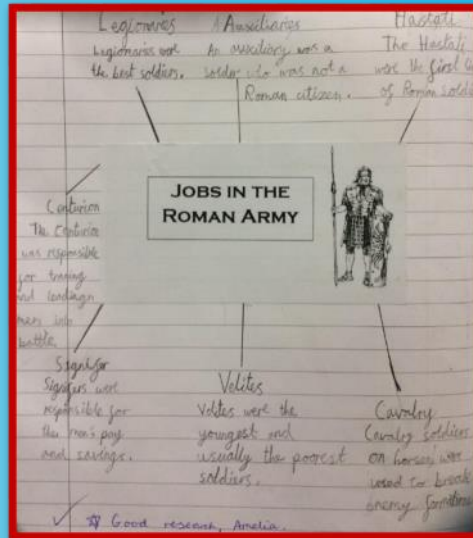 Legionaries
Legionaries were
the best soldiers.
Auxiliaries
An auxiliary was a
soldier who was not a
Roman citizen.
Hastati
The Hastati
were the first
of Roman
JOBS IN THE
ROMAN ARMY
Centurion
The Centurion
was responsible
for training
and leading
men into
battle
Signifer
Signifers were
responsible for
the men's pay
and savings.
Velites
Velites were the
youngest and
usually the poorest
soldiers.
Cavalry
Cavalry soldiers
on horses were
used to break
enemy formations
Good research, Amelia.